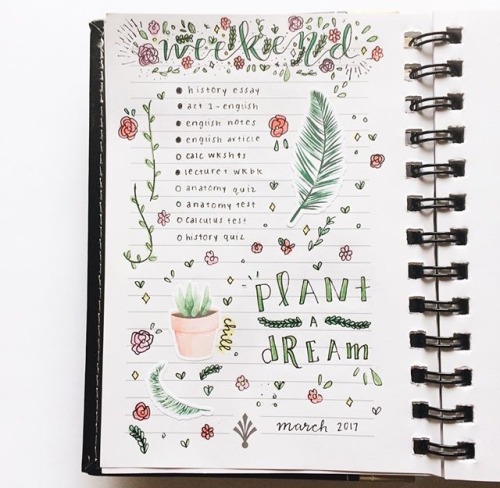 weekend
history essay
act 1-english
english notes
english article
calc wkshts
lecture + wkbk
anatomy quiz
anatomy test
calculus test
history quiz
plant
a
dream
chill
march 2017